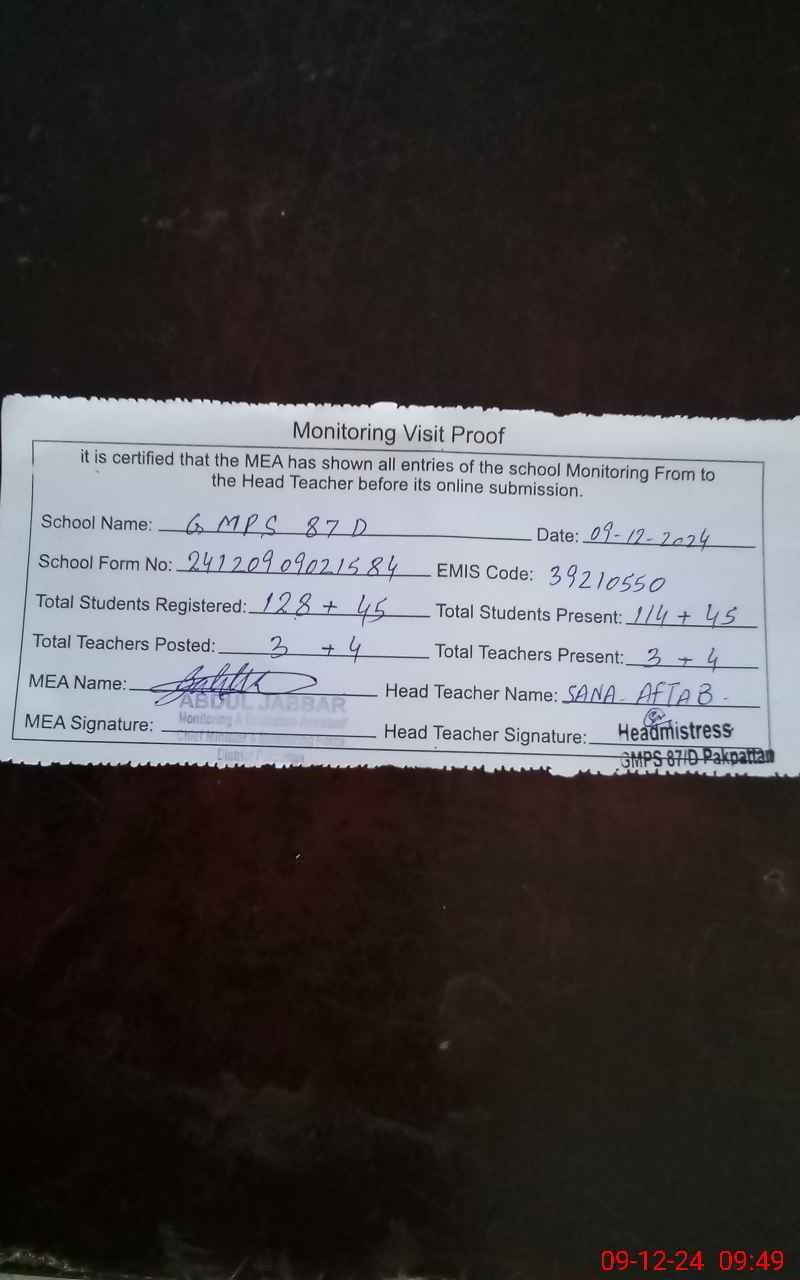 Monitoring Visit Proof
it is certified that the MEA has shown all entries of the school Monitoring From to
the Head Teacher before its online submission.
School Name: GMPS 87 D Date: 09-12-2024
School Form No: 24120909021584 EMIS Code: 39210550
Total Students Registered: 128 + 45 Total Students Present: 114 + 45
Total Teachers Posted: 3 + 4 Total Teachers Present: 3 + 4
MEA Name: Head Teacher Name: SANA AFTAB
ABDUL JABBAR
MEA Signature: Head Teacher Signature: Headmistress
GMPS 87/D Pakpattan
09-12-24 09:49